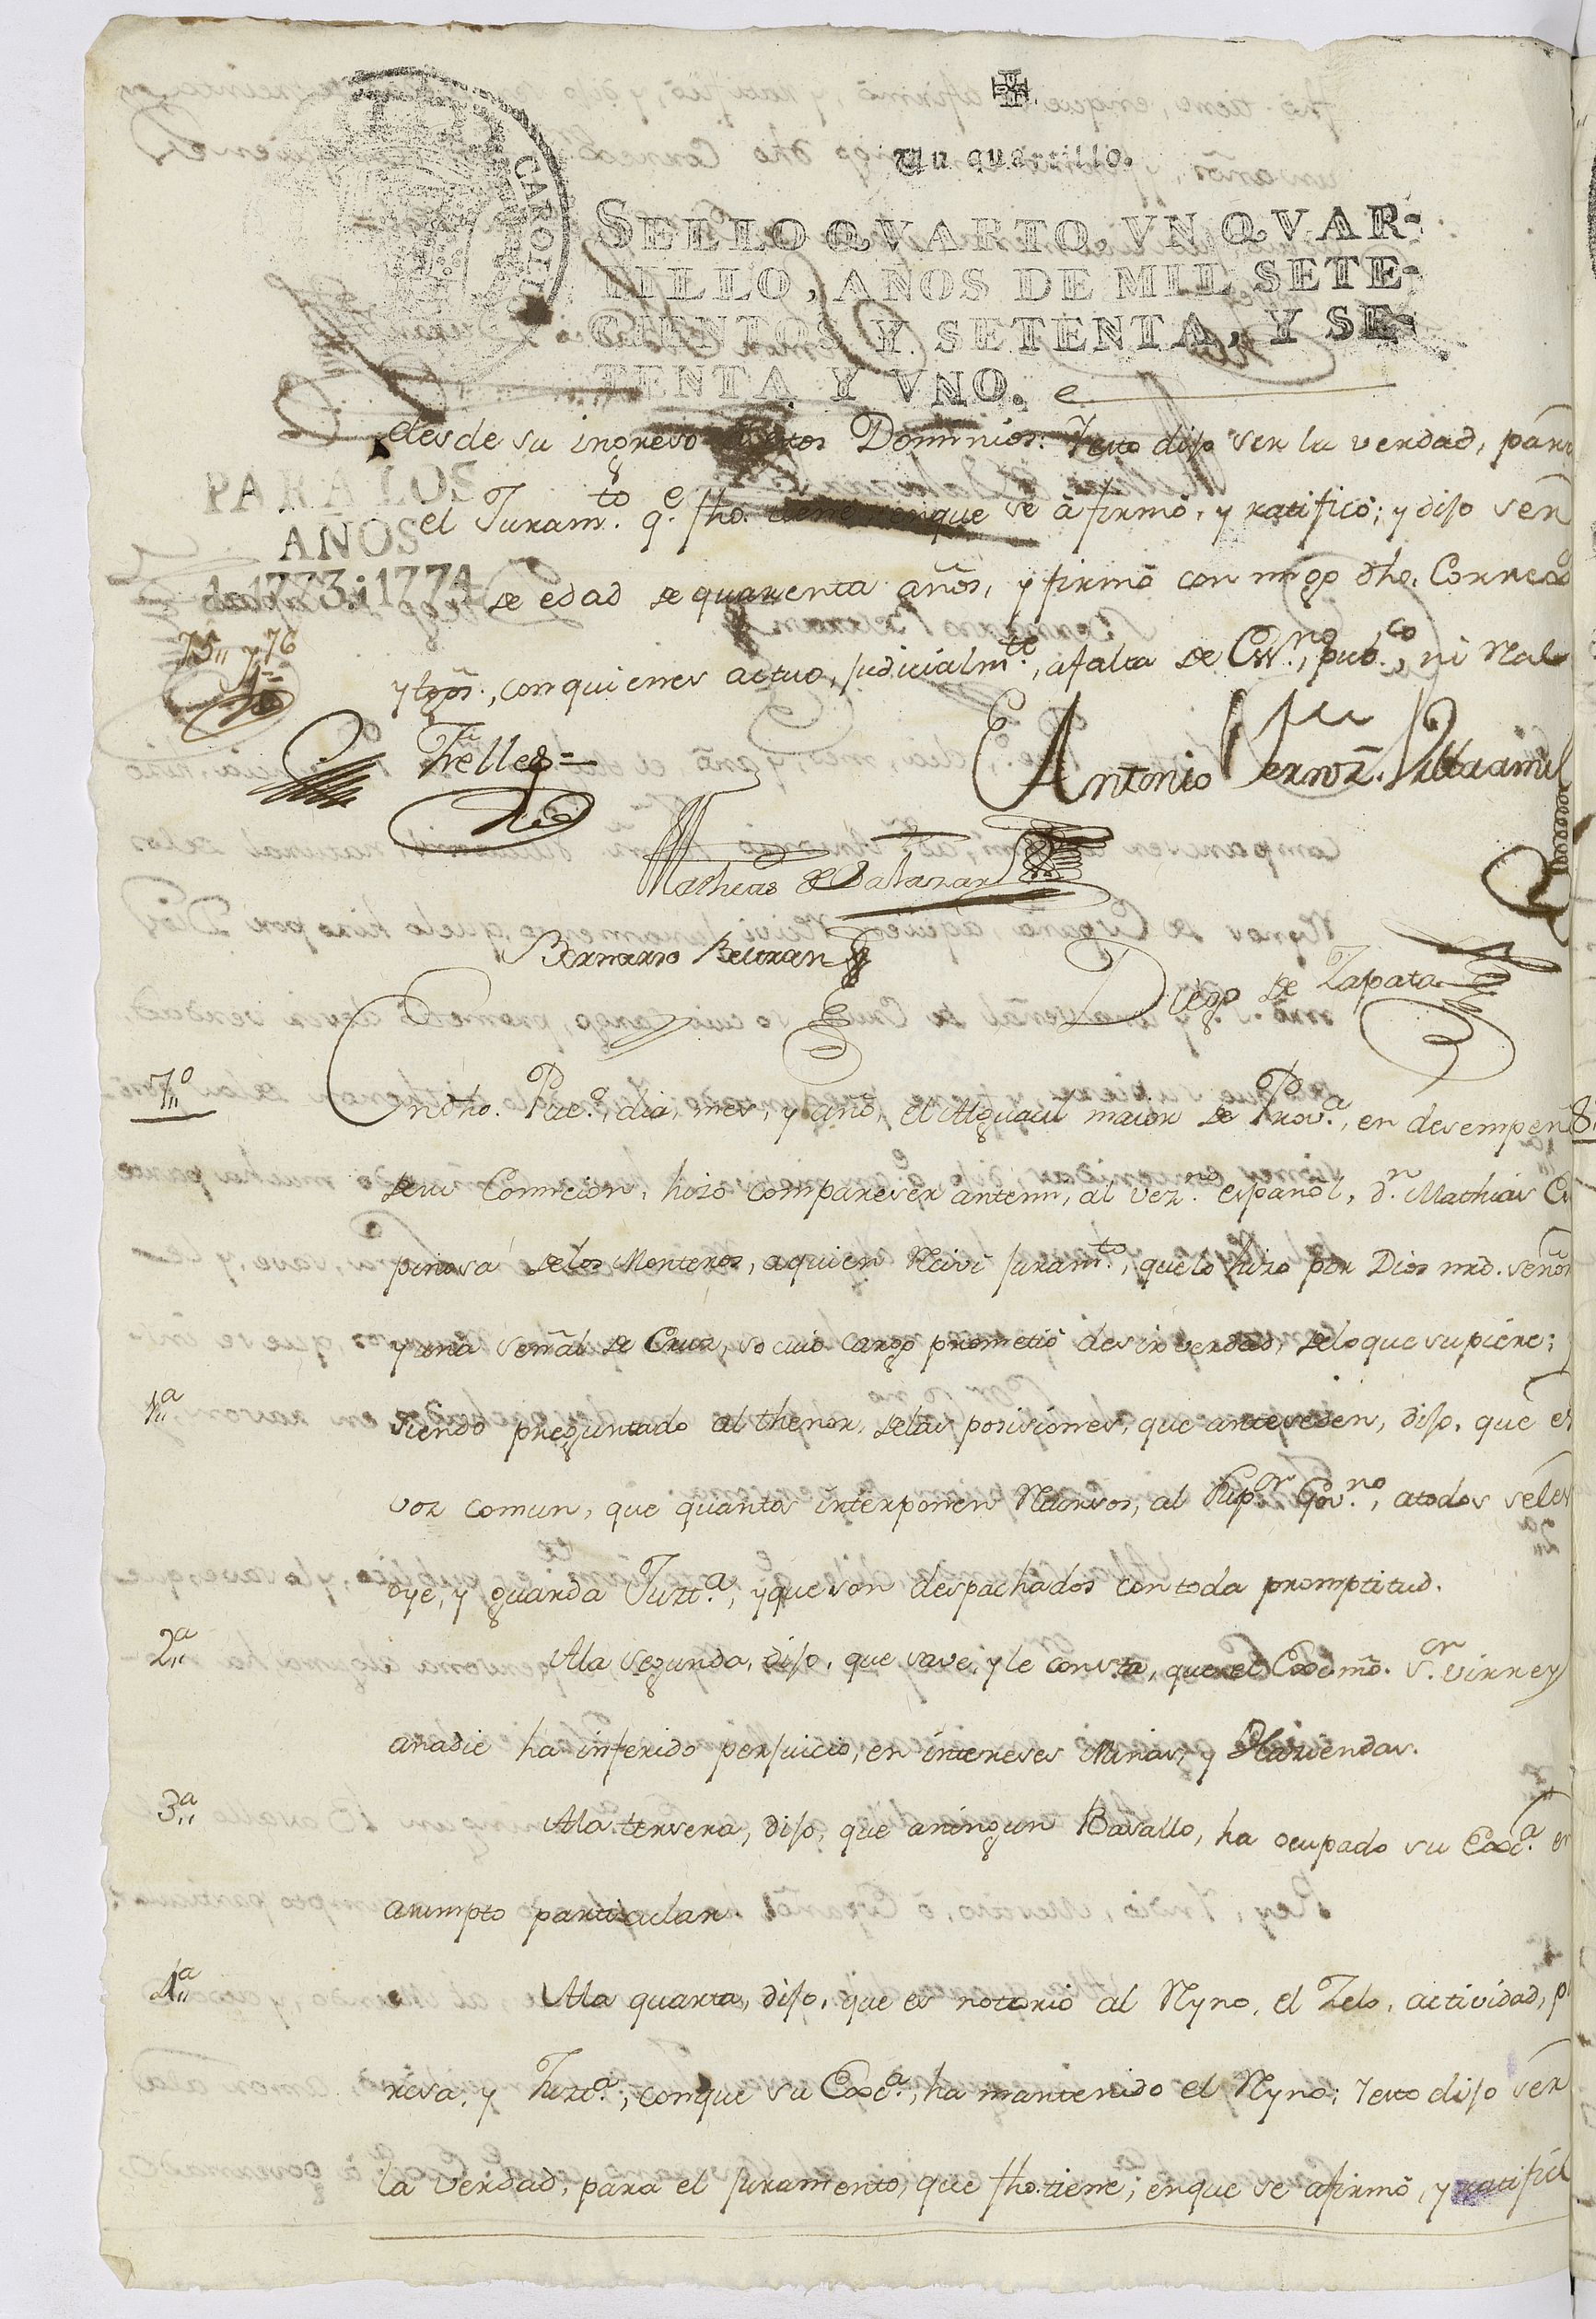 Un quartillo.
SELLO QVARTO, VN QVAR-
TILLO, AÑOS DE MIL SETE-
CIENTOS Y SETENTA, Y SE-
TENTA Y VNO.
CAROLUS
PARA LOS
AÑOS
de 1773. i 1774
75,, y 76
desde su ingreso estos Dominios. Y esto dijo ser la verdad, para
el Juramto. qe. fho. tiene, enque se afirmó, y ratificó; y dijo sèr
de edad de quarenta años, y firmó conmigo dho. Corregor
y tgos., con quienes actuo, judicialmte., afalta de Essno., pubco., ni Real
Trelles=
Antonio Fernnz. Villaamil
Mathias de Salazar
Bernardo Beltran
Diego de Zapata
7,,o
En dho. Pueo., dia, mes, y año, el Alguacil maior de Prova., en desempeñ
desu Comicion, hizo compareser antemi, al vezno. español, dn. Mathias Es
pinosa delos Monteros, aquien Reciví juramto., quelo hizo por Dios nrõ. señor
y una señal de Cruz, so cuio cargo prometió desir verdad, delo que supiére;
1,,a
siendo preguntado al thenor, delas posisiones, que anteseden, dijo, que es
voz comun, que quantos interponen Recursos, al Supor. Govno., atodos seles
oye, y guarda Justa., y que son despachados con toda promptitud.
2,,a
Ala segunda, dijo, que save, y le consta, que el Exc̃mõ. Sor. virrey
anadie ha inferido perjuicio, en intereses Minas, y Haziendas.
3,,a
Ala tersera, dijo, que aningun Basallo, ha ocupado su Exca. en
asumpto particular.
4,,a
Ala quarta, dijo, que es notorio al Reyno, el Zelo, actividad,
resa, y Justa., con que su Exca., ha mantenido el Reyno; Yesto dijo sèr
la verdad, para el juramento, que fho. tiene; enque se afirmó, y ratificó